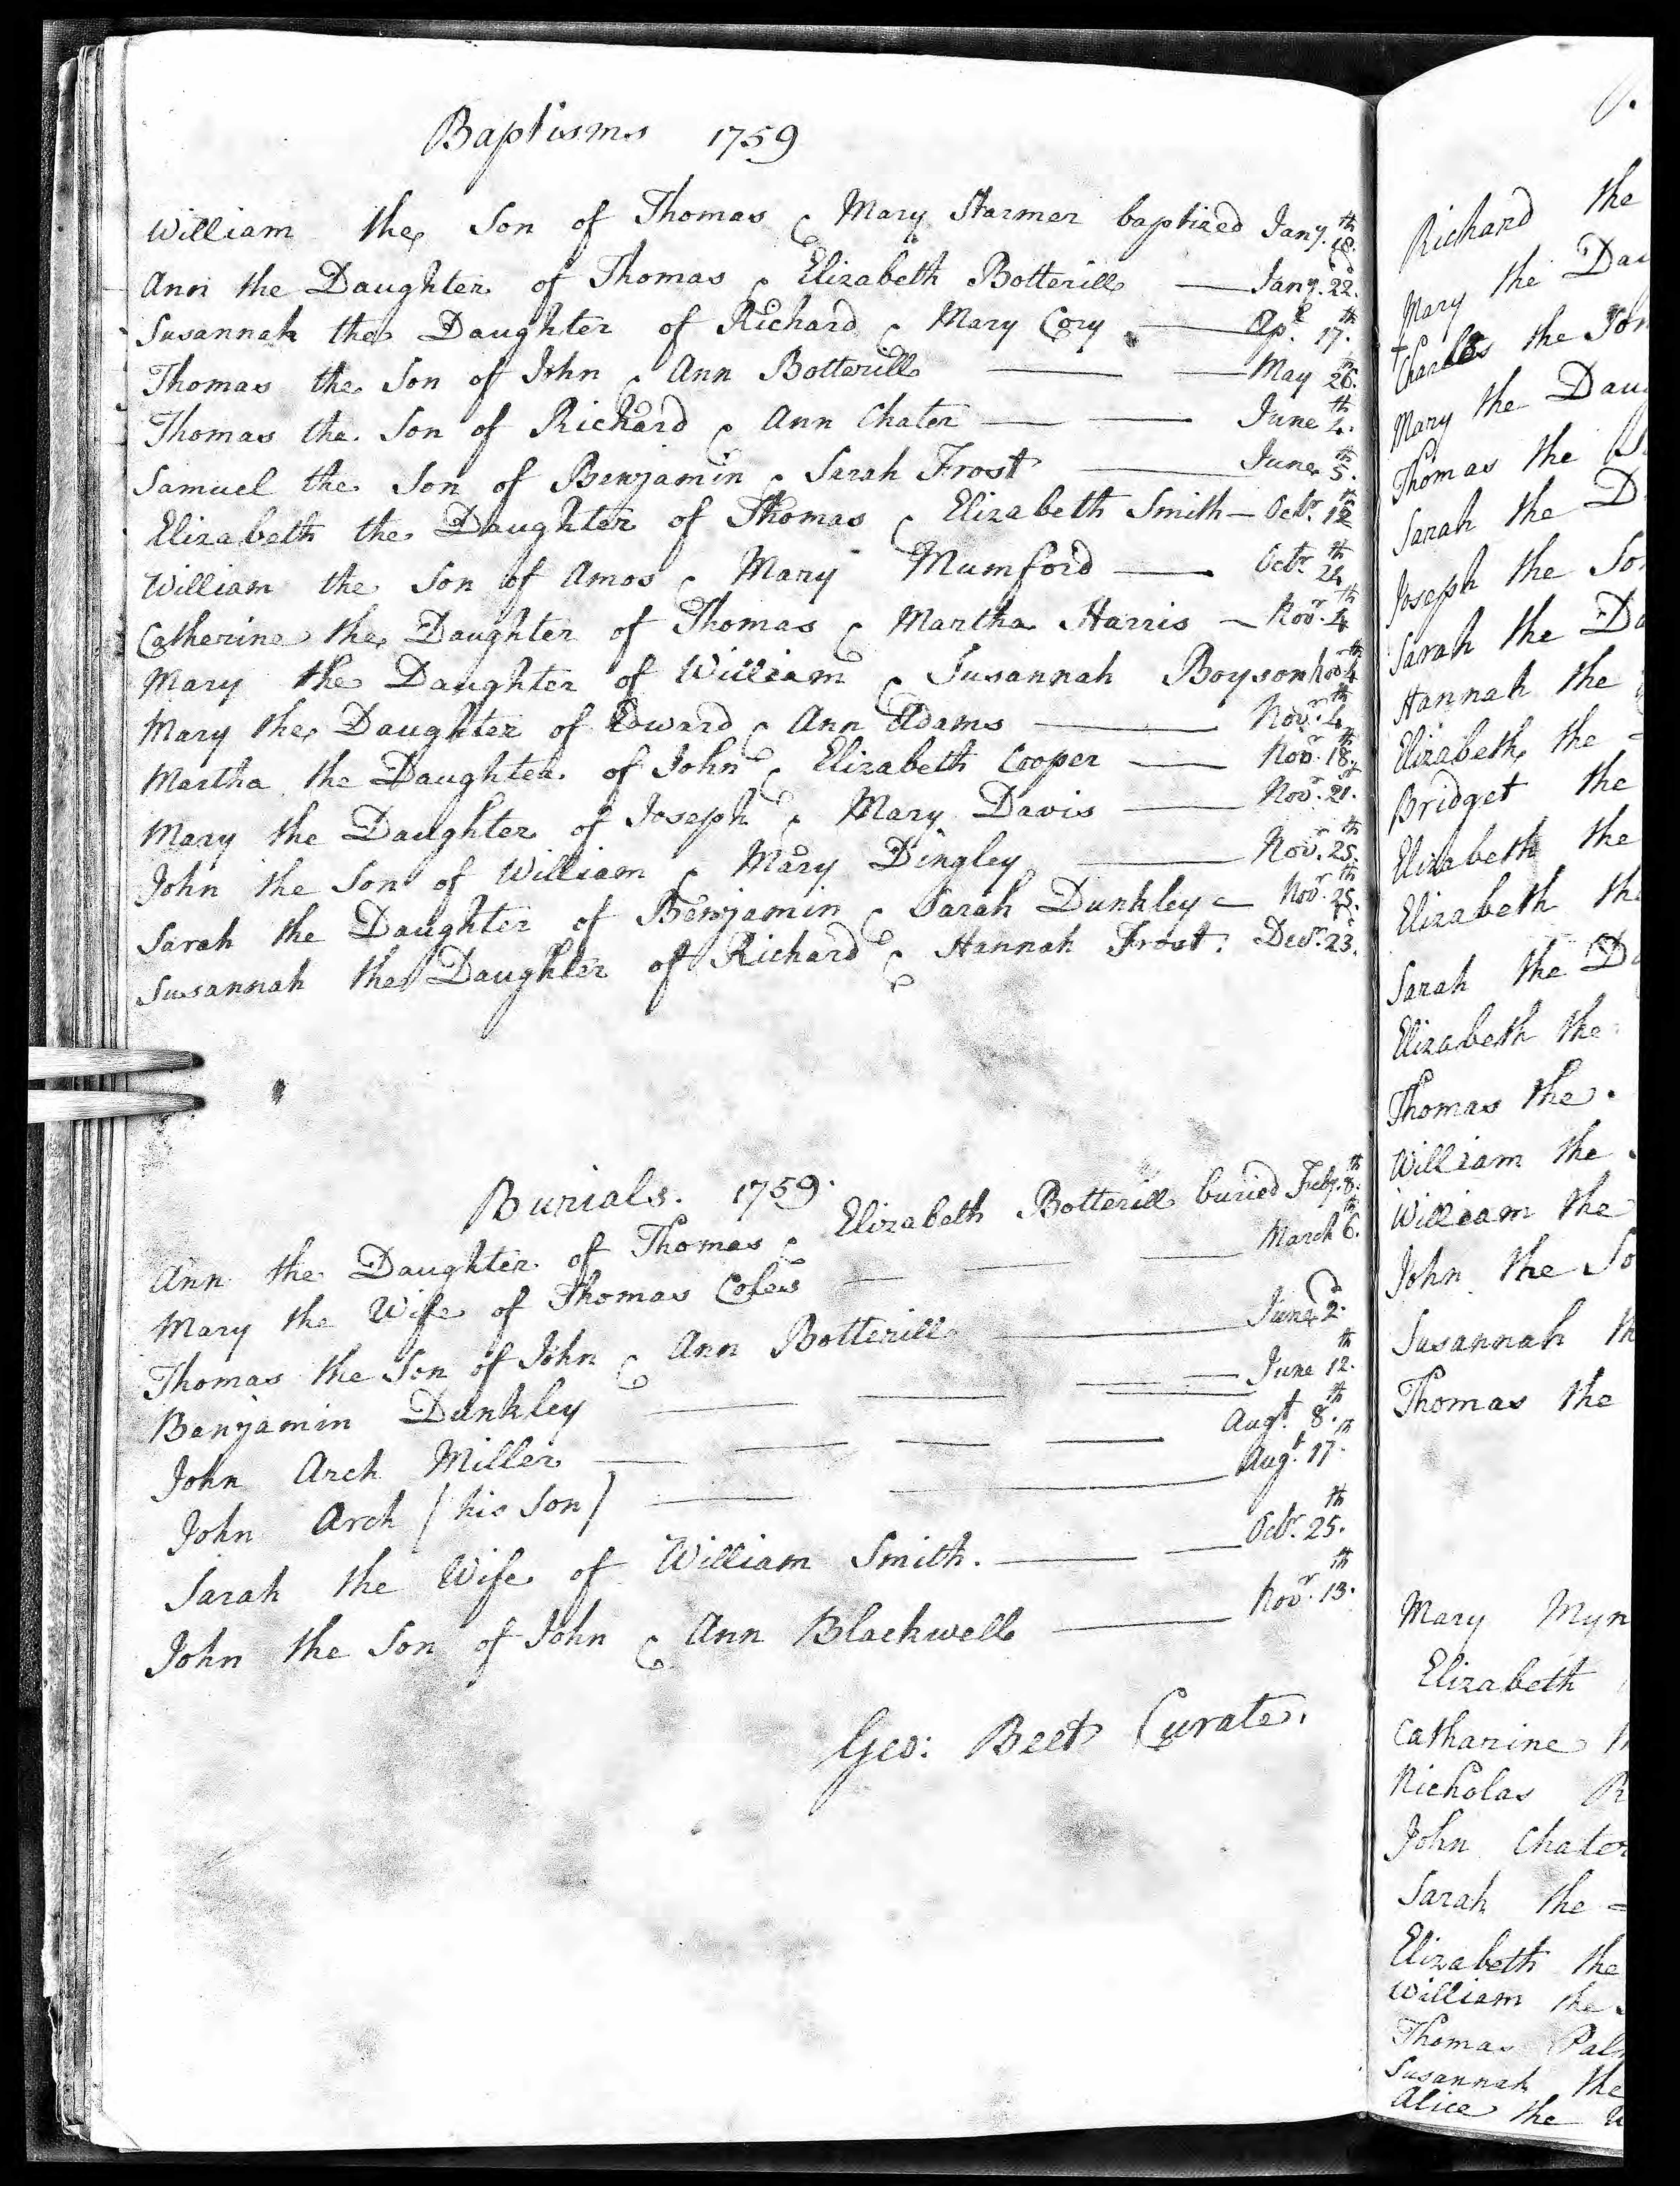 Baptisms 1759
William the Son of Thomas & Mary Starmer baptized Jany. 18th.
Ann the Daughter of Thomas & Elizabeth Botterill — Jany. 22d.
Susannah the Daughter of Richard & Mary Cory — Apl. 17th.
Thomas the Son of John & Ann Botterill — — May 26th.
Thomas the Son of Richard & Ann Chater — — June 4th.
Samuel the Son of Benjamin & Sarah Frost — June 5th.
Elizabeth the Daughter of Thomas & Elizabeth Smith — Octr. 12th
William the Son of Amos & Mary Mumford — Octr. 24th
Catherine the Daughter of Thomas & Martha Harris — Novr. 4th
Mary the Daughter of William & Susannah Boyson Novr 4th
Mary the Daughter of Edward & Ann Adams — Novr. 4th
Martha the Daughter of John & Elizabeth Cooper — Novr. 18th
Mary the Daughter of Joseph & Mary Davis — Novr. 21st.
John the Son of William & Mary Dingley — Novr. 25th.
Sarah the Daughter of Benjamin & Sarah Dunkley — Novr. 25th.
Susannah the Daughter of Richard & Hannah Frost. Decr. 23d.
Burials. 1759.
Ann the Daughter of Thomas & Elizabeth Botterill buried Feby. 8th.
Mary the Wife of Thomas Coles — — — March 6th.
Thomas the Son of John & Ann Botterill — June 2d.
Benjamin Dunkley — — — — June 12th.
John Arch Miller — — — — Augt. 8th.
John Arch (his Son) — — Augt. 17th.
Sarah the Wife of William Smith. — — Octr. 25th.
John the Son of John & Ann Blackwell — Novr. 13th.
Geo: Beet Curate.
Richard the
Mary the Dau
Charles the Son
Mary the Daug
Thomas the
Sarah the D
Joseph the So
Sarah the Da
Hannah the
Elizabeth the
Bridget the
Elizabeth the
Elizabeth the
Sarah the Da
Elizabeth the
Thomas the
William the
William the
John the So
Susannah th
Thomas the
Mary Myn
Elizabeth
Catharine
Nicholas
John Chater
Sarah the
Elizabeth the
William the
Thomas Pal
Susannah the
Alice the W